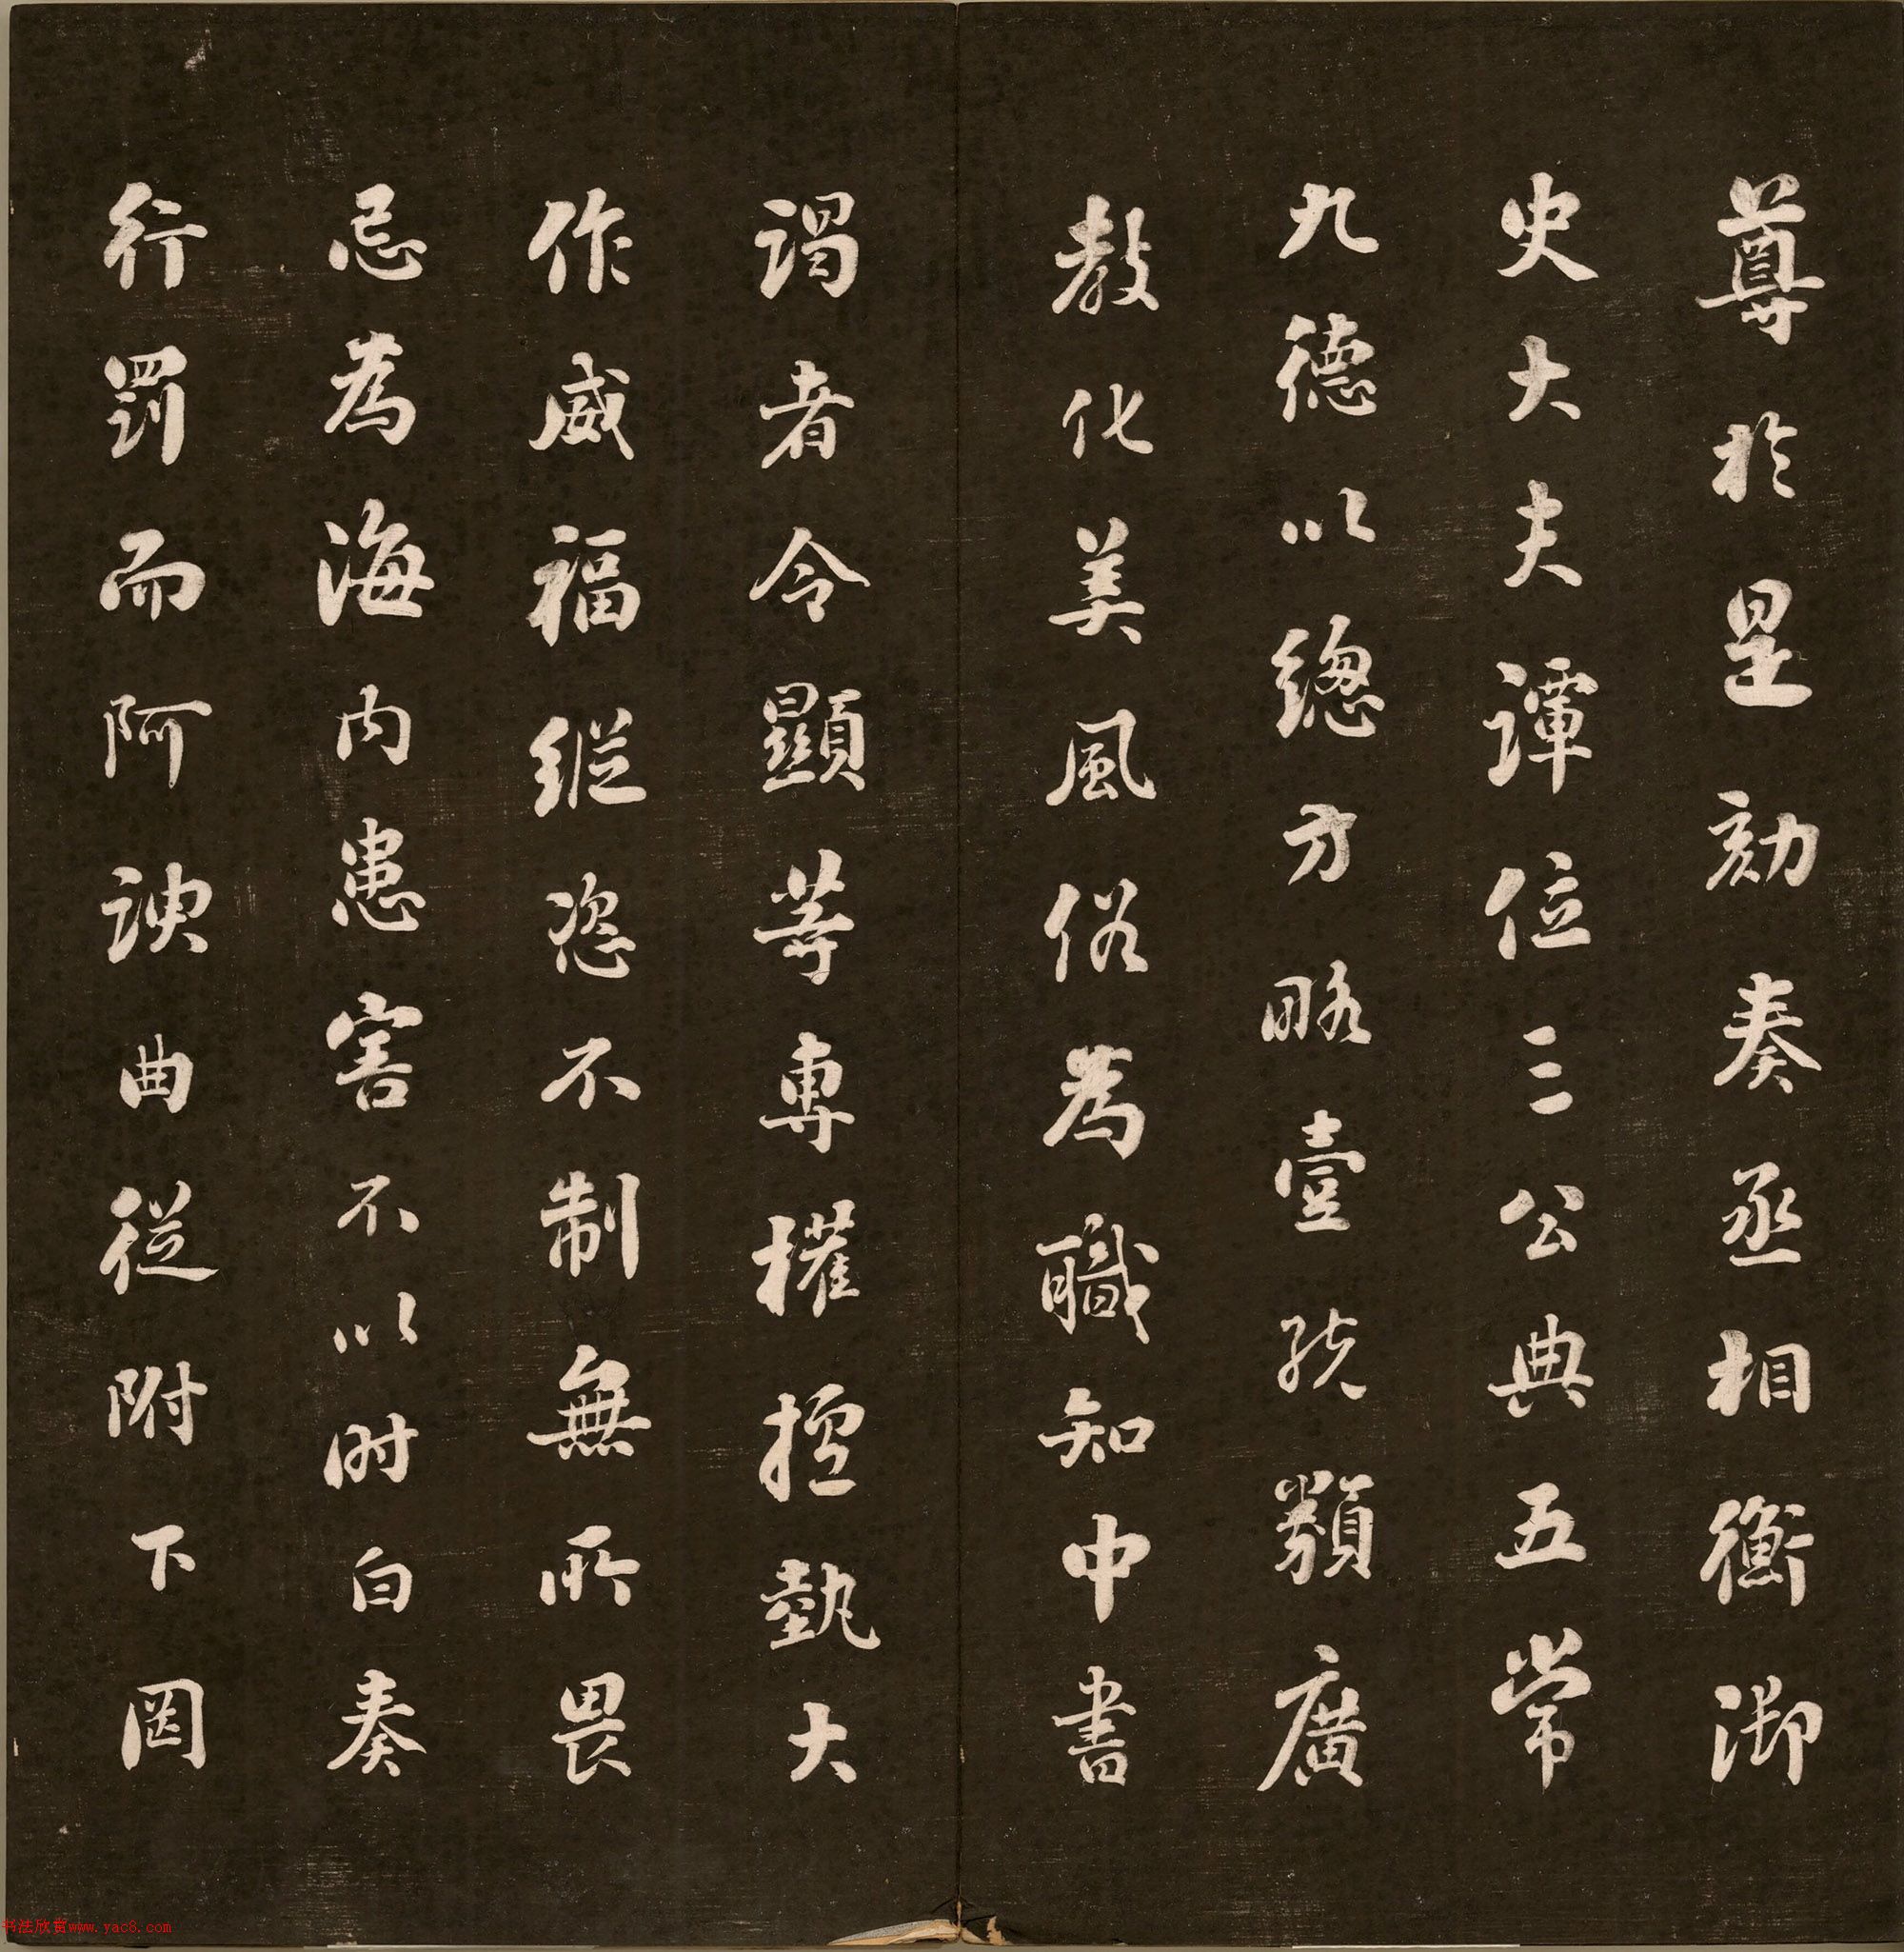 尊於是劾奏丞相衡御
史大夫譚位三公典五常
九德以總方略壹統類廣
教化美風俗為職知中書
謁者令顯等專權擅執大
作威福縱恣不制無所畏
忌為海內患害不以时白奏
行罰而阿諛曲從附下罔
书法欣赏www.yac8.com